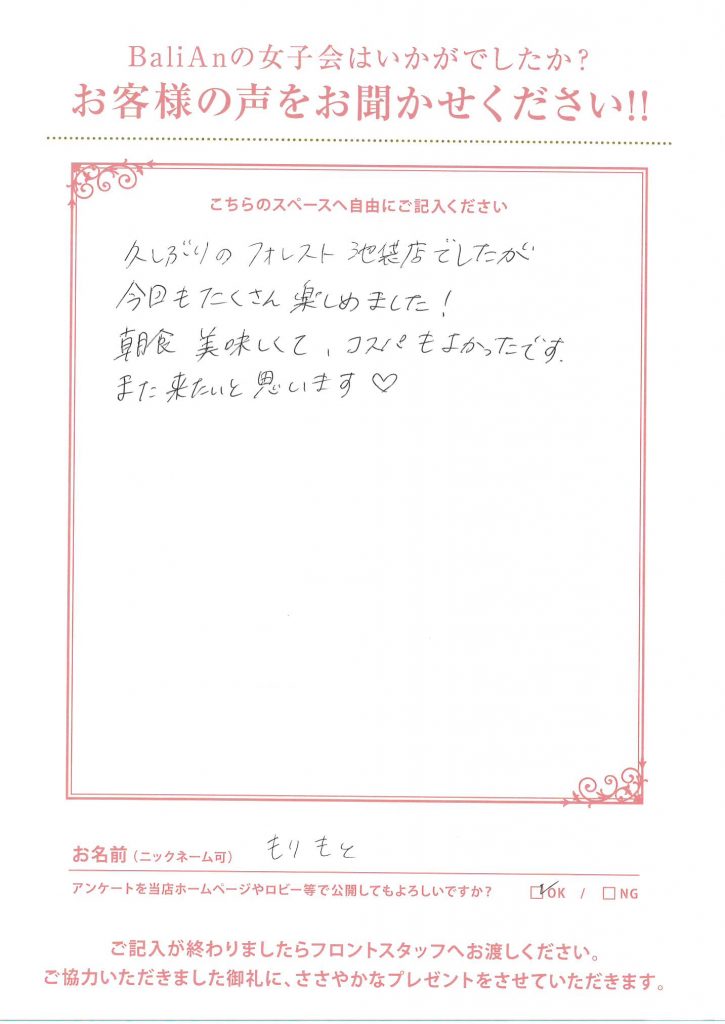 BaliAnの女子会はいかがでしたか?
お客様の声をお聞かせください!!
こちらのスペースへ自由にご記入ください
久しぶりの フォレスト 池袋店でしたが
今回もたくさん 楽しめました!
朝食 美味しくて、コスパもよかったです.
また来たいと思います♡
お名前(ニックネーム可) もりもと
アンケートを当店ホームページやロビー等で公開してもよろしいですか? ☑OK / □NG
ご記入が終わりましたらフロントスタッフへお渡しください。
ご協力いただきました御礼に、ささやかなプレゼントをさせていただきます。